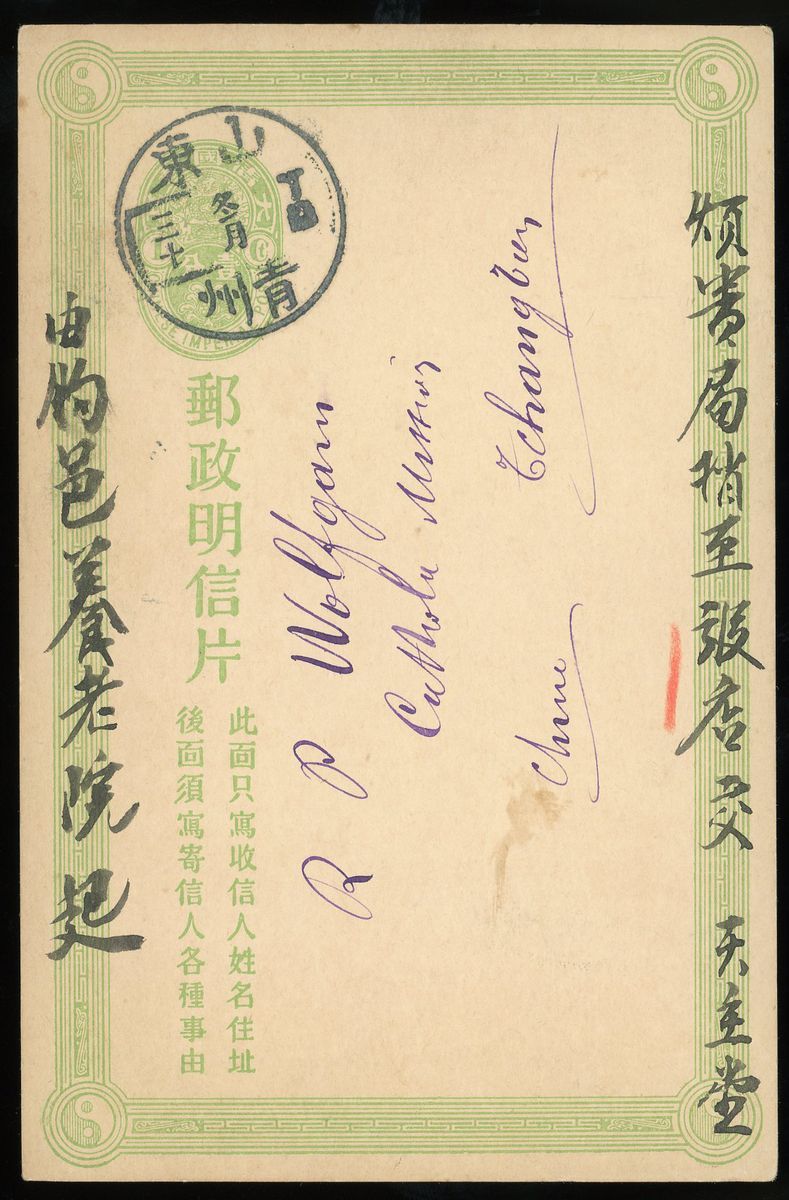 煩貴局捎至張店交 天主堂
R P Wolfgam
Catholic Mission
Tchangtien
Chine
山東
丁
冬月
青州
IMPER
郵政明信片
此面只寫收信人姓名住址
後面須寫寄信人各種事由
由朐邑養老院起